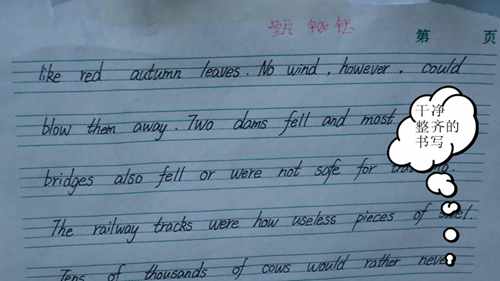 第 页
like red autumn leaves. No wind, however, could
blow them away. Two dams fell and most
干净
整齐的
书写
bridges also fell or were not safe for
The railway tracks were how useless pieces of
Tens of thousands of cows would rather never